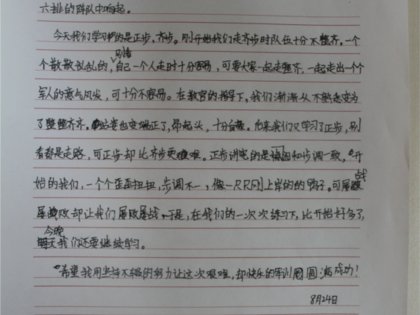 六排的群队中响起。
今天我们学习的是正步、齐步。刚开始我们走齐步时队伍十分不整齐,一个
个散散乱乱的,自己一个人走时十分容易,可要大家一起走整齐,一起走出一个个
军人的意气风发,可十分不容易。在教官的指导下,我们渐渐从不熟走变为
了整整齐齐,也变端正了,昂起头,十分。后来我们又学习了正步,别
看都是走路,可正步却比齐步更难。正步讲究的是和步调一致,开
始的我们,一个个歪歪扭扭,步调不一,像一只只刚上岸的的鸭子。可屡战
屡败却让我们屡败屡战,于是,在我们的一次次练习下,比开始好多了,
今晚
明天我们还要继续学习。
“希望我用坚持不懈的努力让这次艰难,却快乐的军训圆圆满成功!
8月24日